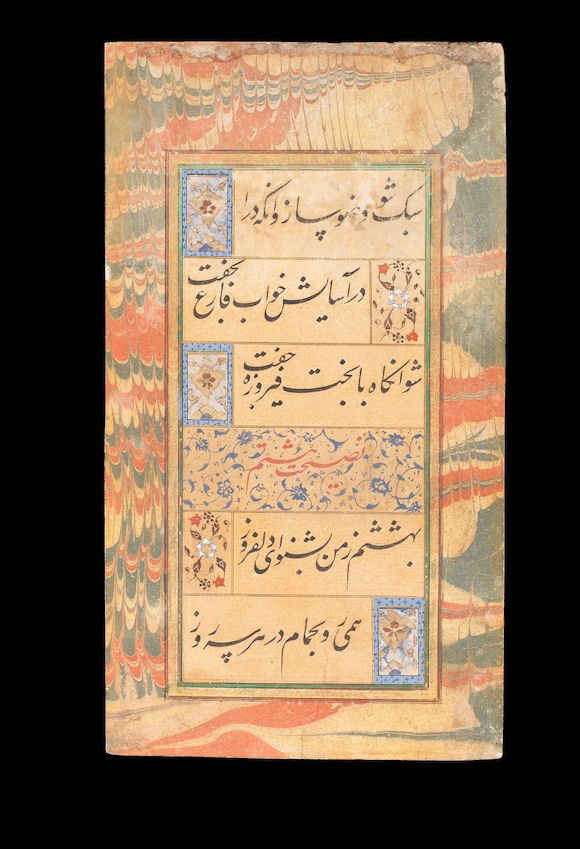 سبک شو وضو ساز وانکه درا
در آسایش خواب فارغ بخفت
شو انگاه با بخت فیروزه جفت
نصیحت هشتم
بهشتم ز من بشنو ای دلفروز
همی رو بحمام در هر سه روز